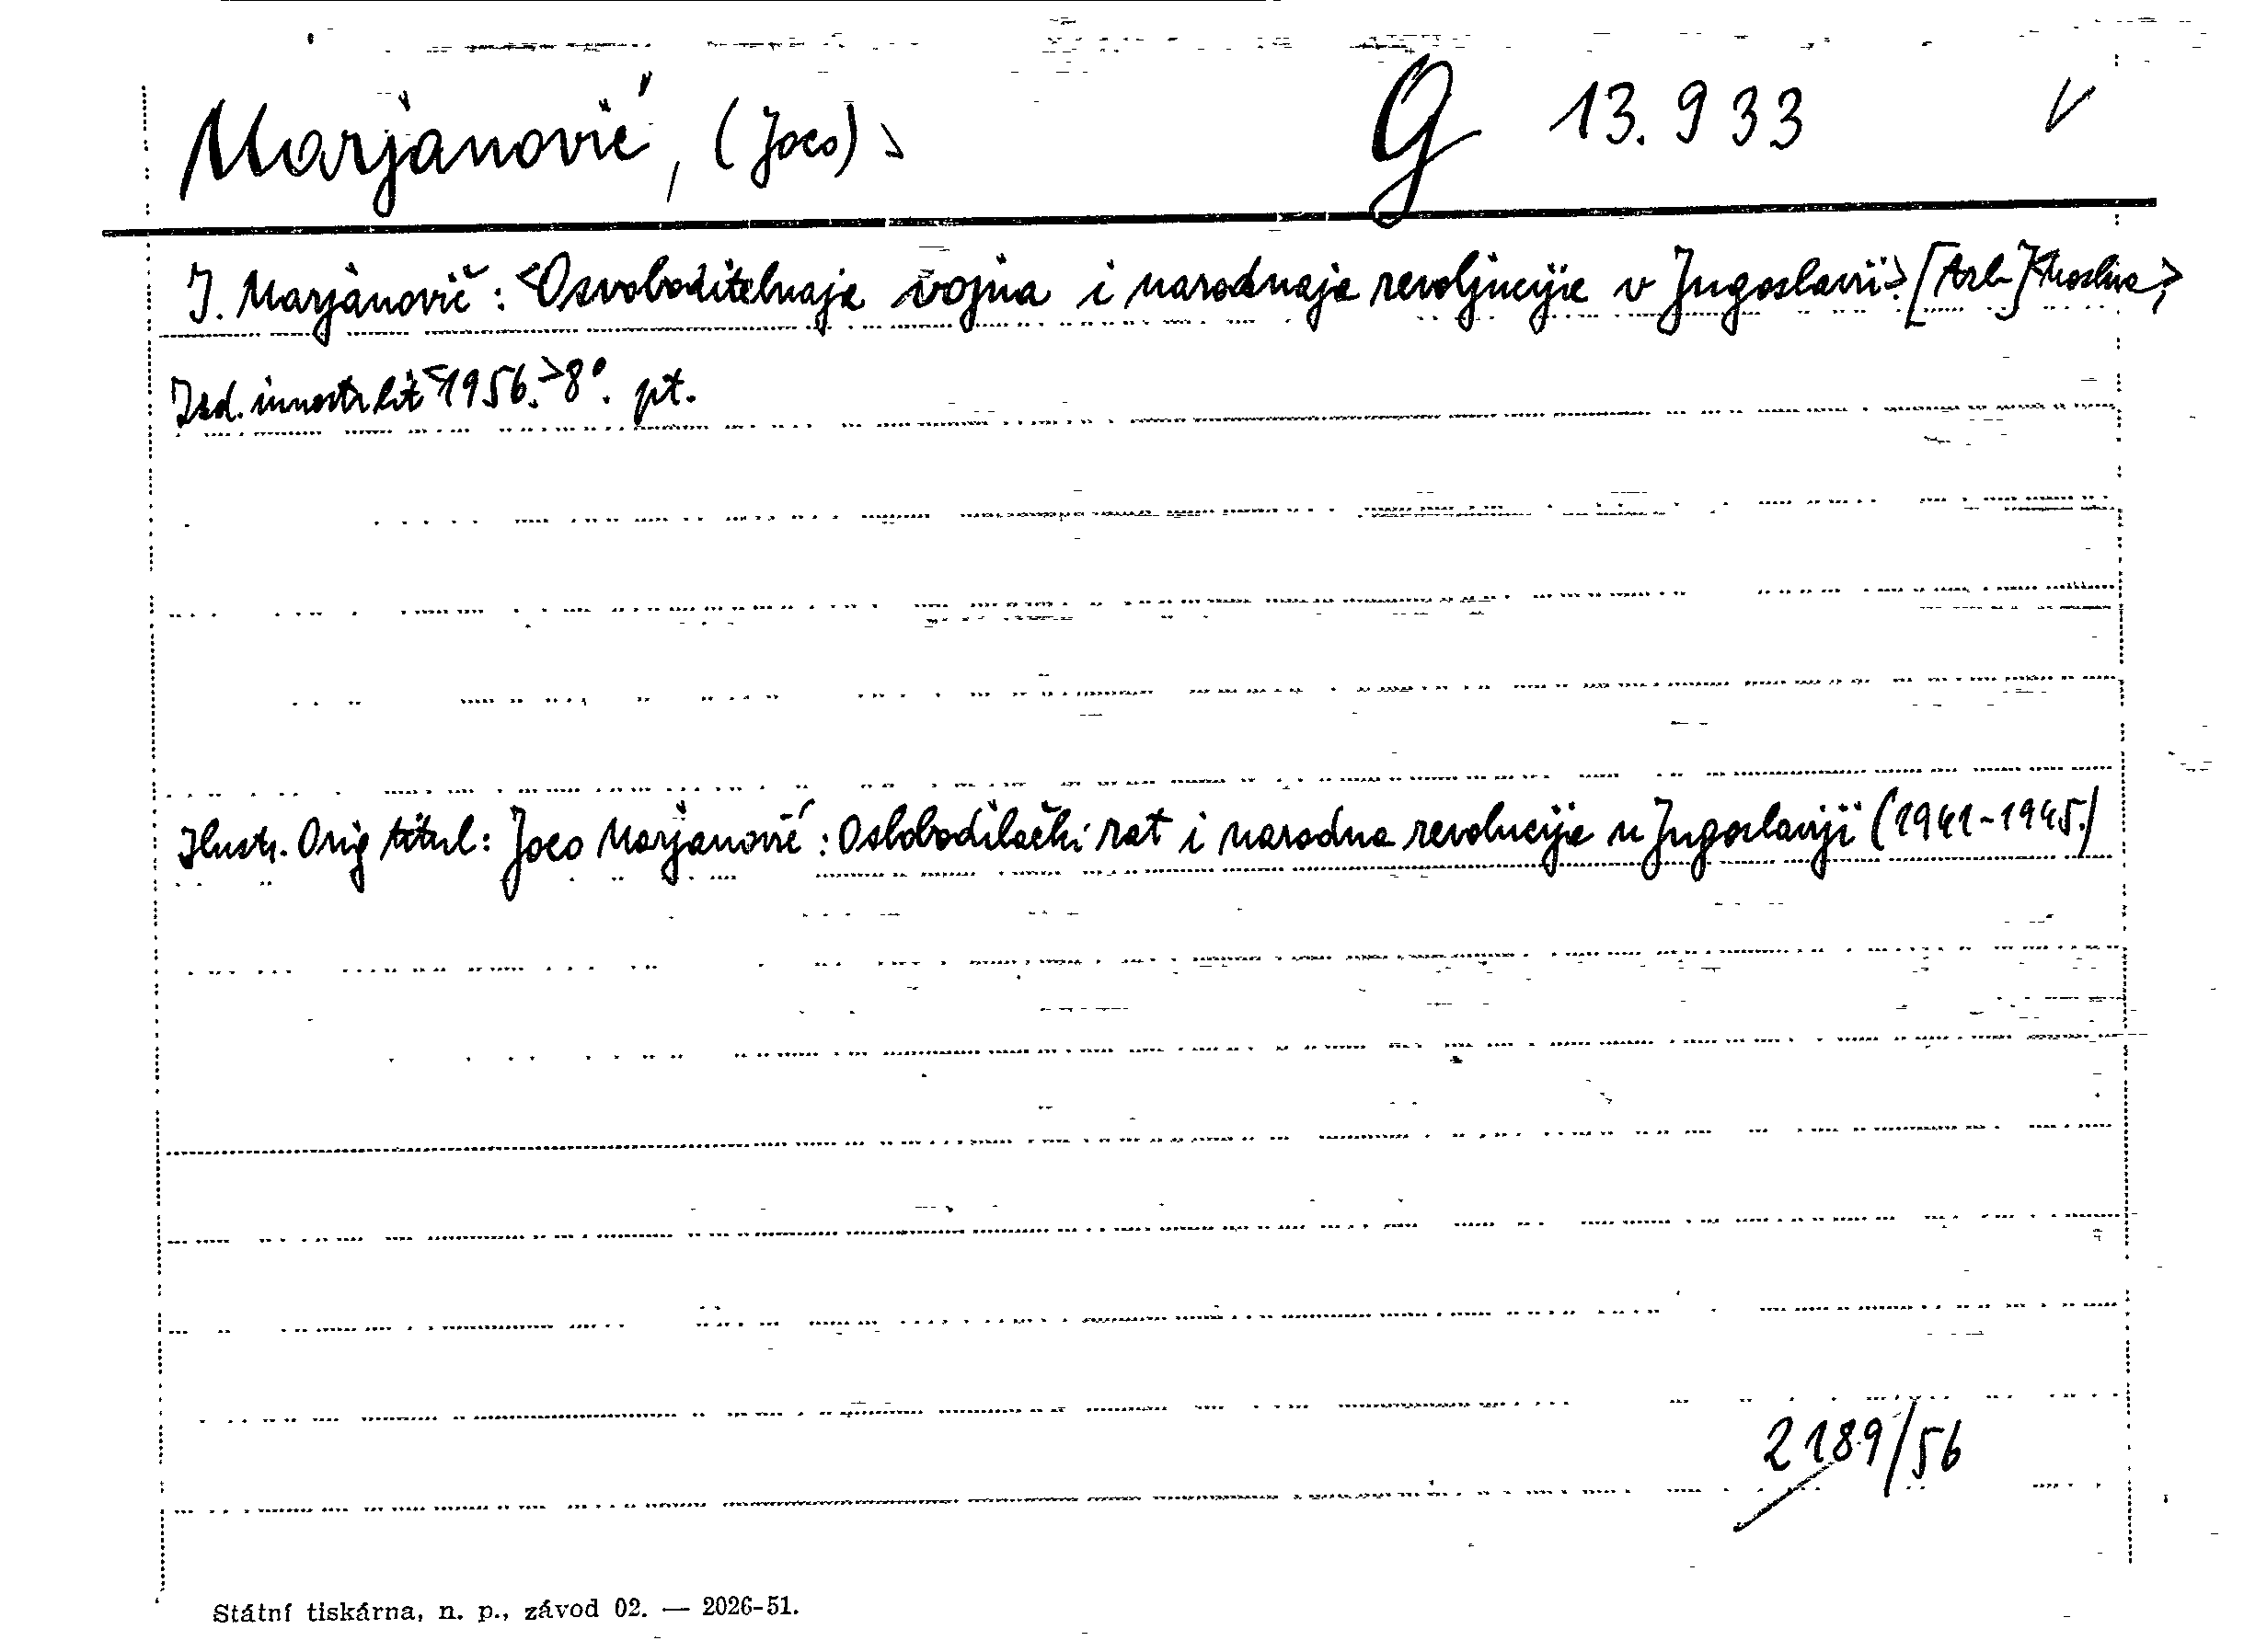 Marjanović, (Joco) > G 13.933 V
J. Marjanovič: <Osvoboditelnaja vojna i narodnaja revoljucija v Jugoslavii.> [Azb.] <Moskva>,
Izd. innostr. lit <1956.> 8°. pt.
Ilustr. Orig titul: Joco Marjanović: Oslobodilački rat i narodna revolucija u Jugoslaviji (1941-1945.)
2189/56
Státní tiskárna, n. p., závod 02. — 2026-51.